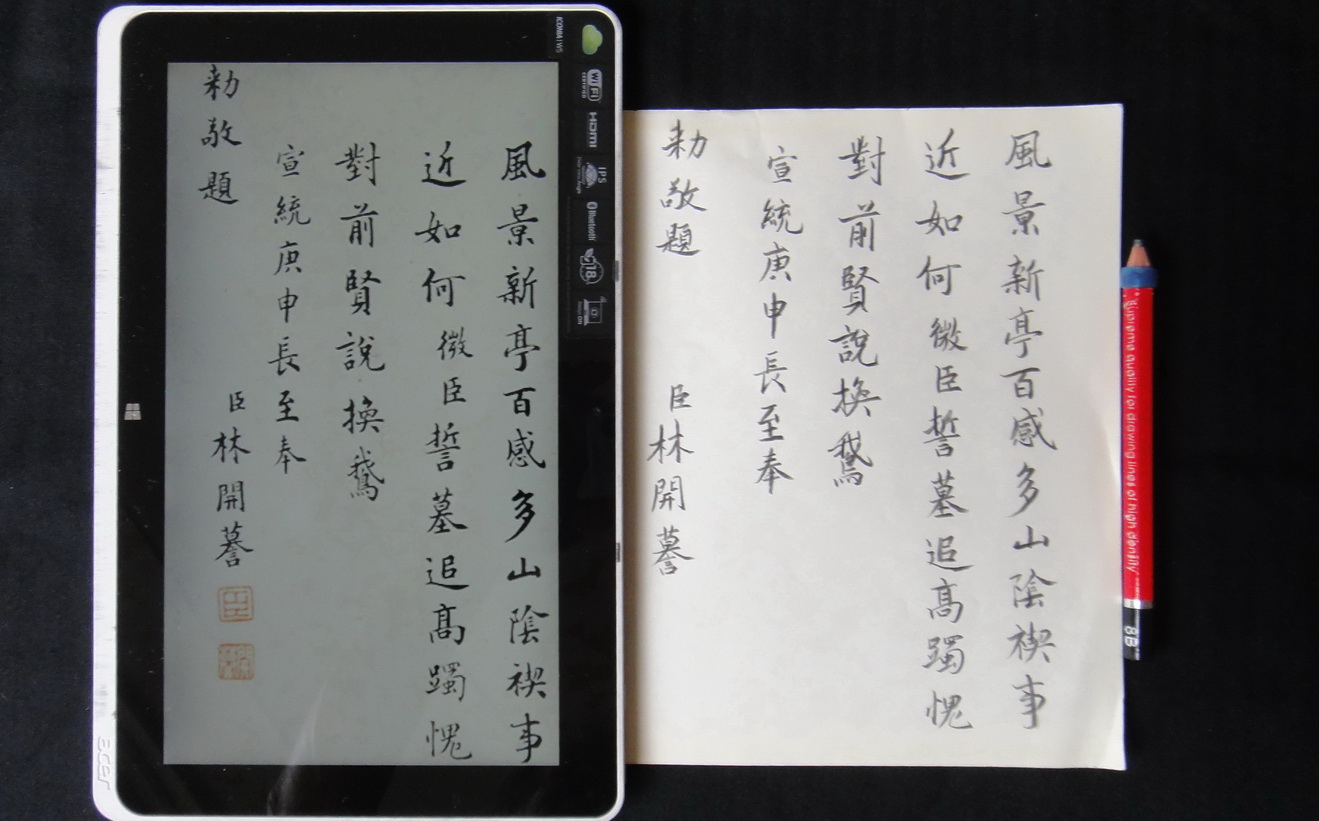 風景新亭百感多山陰禊事
近如何微臣誓墓追高躅愧
對前賢說換鵞
宣統庚申長至奉
勅敬題
臣林開謩
ICONIA W5
WiFi
CERTIFIED
HDMI
IPS
Bluetooth
18
acer
風景新亭百感多山陰禊事
近如何微臣誓墓追高躅愧
對前賢說換鵞
宣統庚申長至奉
勅敬題
臣林開謩
supreme quality for drawing lines of high density
8B